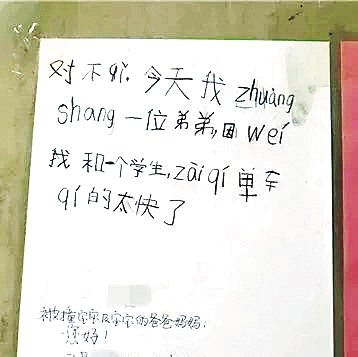 对不qǐ.今天我zhuàng
shang一位弟弟,因wéi
我和一个学生,zài qí单车
qí的太快了
被撞宝宝及宝宝的爸爸妈妈:
您好!